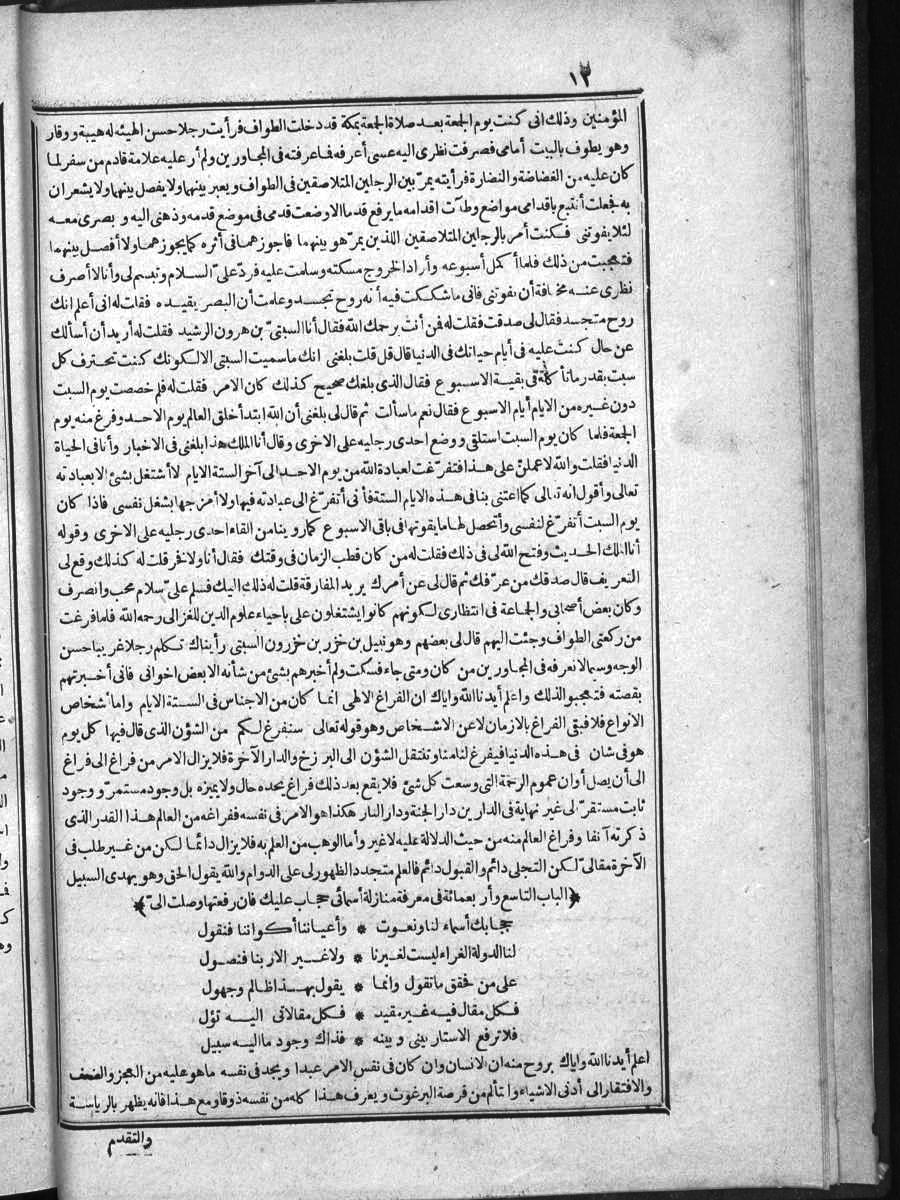 ١٢
المؤمنين وذلك انى كنت يوم الجمعة بعد صلاة الجمعة بمكة قد دخلت الطواف فرأيت رجلا حسن الهيئة له هيبة ووقار
وهو يطوف بالبيت أمامى فصرفت نظرى اليه عسى أعرفه فما عرفته فى المجاورين ولم أر عليه علامة قادم من سفر لما
كان عليه من الغضاضة والنضارة فرأيته يمرّ بين الرجلين المتلاصقين فى الطواف ويعبر بينهما ولا يفصل بينهما ولا يشعران
به فجعلت أتتبع باقدامى مواضع وطآت اقدامه ما يرفع قدما الا وضعت قدمى فى موضع قدمه وذهنى اليه وبصرى معه
لئلا يفوتنى فكنت أمر بالرجلين المتلاصقين اللذين يمرّ هو بينهما فاجوزهما فى أثره كما يجوزهما ولا أفصل بينهما
فتعجبت من ذلك فلما أكمل أسبوعه وأراد الخروج مسكته وسلمت عليه فردّ علىّ السلام وتبسم لى وأنا لا أصرف
نظرى عنه مخافة أن يفوتنى فانى ما شككت فيه أنه روح تجسد وعلمت أن البصر يقيده فقلت له انى أعلم انك
روح متجسد فقال لى صدقت فقلت له فمن أنت يرحمك الله فقال أنا السبتىّ بن هرون الرشيد فقلت له أريد أن أسألك
عن حال كنت عليه فى أيام حياتك فى الدنيا قال قل قلت بلغنى انك ما سميت السبتى الا لكونك كنت تحترف كل
سبت بقدر ما تأكله فى بقية الاسبوع فقال الذى بلغك صحيح كذلك كان الامر فقلت له فلم خصصت يوم السبت
دون غيره من الايام أيام الاسبوع فقال نعم ما سألت ثم قال لى بلغنى أن الله ابتدأ خلق العالم يوم الاحد وفرغ منه يوم
الجمعة فلما كان يوم السبت استلقى ووضع احدى رجليه على الاخرى وقال أنا الملك هذا بلغنى فى الاخبار وأنا فى الحياة
الدنيا فقلت والله لاعملنّ على هذا فتفرّغت لعبادة الله من يوم الاحد الى آخر الستة الايام لا أشتغل بشئ الا بعبادته
تعالى وأقول انه تعالى كما اعتنى بنا فى هذه الايام الستة فأنى أتفرّغ الى عبادته فيها ولا أمزجها بشغل نفسى فاذا كان
يوم السبت أتفرّغ لنفسى وأتحصل لها ما يقوتها فى باقى الاسبوع كما روينا من القاء احدى رجليه على الاخرى وقوله
أنا الملك الحديث وفتح الله لى فى ذلك فقلت له من كان قطب الزمان فى وقتك فقال أنا ولا فخر قلت له كذلك وقع لى
التعريف قال صدقك من عرّفك ثم قال لى عن أمرك يريد المفارقة قلت له ذلك اليك فسلم علىّ سلام محب وانصرف
وكان بعض أصحابى والجماعة فى انتظارى لكونهم كانوا يشتغلون على باحياء علوم الدين للغزالى رحمه الله فلما فرغت
من ركعتى الطواف وجئت اليهم قال لى بعضهم وهو نبيل بن خزر بن خزرون السبتى رأيناك تكلم رجلا غريبا حسن
الوجه وسيما لا نعرفه فى المجاورين من كان ومتى جاء فسكت ولم أخبرهم بشئ من شأنه الا بعض اخوانى فانى أخبرتهم
بقصته فتعجبوا لذلك واعلم أيدنا الله واياك ان الفراغ الالهى انما كان من الاجناس فى الستة الايام واما أشخاص
الانواع فلا فبقى الفراغ بالازمان لا عن الاشخاص وهو قوله تعالى سنفرغ لكم من الشؤن الذى قال فيها كل يوم
هو فى شان فى هذه الدنيا فيفرغ لنا منا وتنتقل الشؤن الى البرزخ والدار الآخرة فلا يزال الامر من فراغ الى فراغ
الى أن يصل أوان عموم الرحمة التى وسعت كل شئ فلا يقع بعد ذلك فراغ يحده حال ولا يميزه بل وجود مستمرّ ووجود
ثابت مستقرّ الى غير نهاية فى الدارين دار الجنة ودار النار هكذا هو الامر فى نفسه ففراغه من العالم هذا القدر الذى
ذكرته آنفا وفراغ العالم منه من حيث الدلالة عليه لا غير وأما الوهب من العلم به فلا يزال دائما لكن من غير طلب فى
الآخرة مقالىّ لكن التجلى دائم والقبول دائم فالعلم متجدد الظهور لى على الدوام والله يقول الحق وهو يهدى السبيل
﴿الباب التاسع وأربعمائة فى معرفة منازلة أسمائى حجاب عليك فان رفعتها وصلت الىّ﴾
حجابك أسماء لنا ونعوت * وأعياننا أكواننا فنقول
لنا الدولة الغراء ليست لغيرنا * ولا غير الا ربنا فنصول
على من تحقق ما تقول وانما * يقول بهذا ظالم وجهول
فكل مقال فيه غير مقيد * فكل مقالاتى اليه تؤل
فلا ترفع الاستار بينى وبينه * فذاك وجود ما اليه سبيل
اعلم أيدنا الله واياك بروح منه ان الانسان وان كان فى نفس الامر عبدا ويجد فى نفسه ما هو عليه من العجز والضعف
والافتقار الى أدنى الاشياء والتألم من قرصة البرغوث ويعرف هذا كله من نفسه ذوقا ومع هذا فانه يظهر بالرياسة
والتقدم